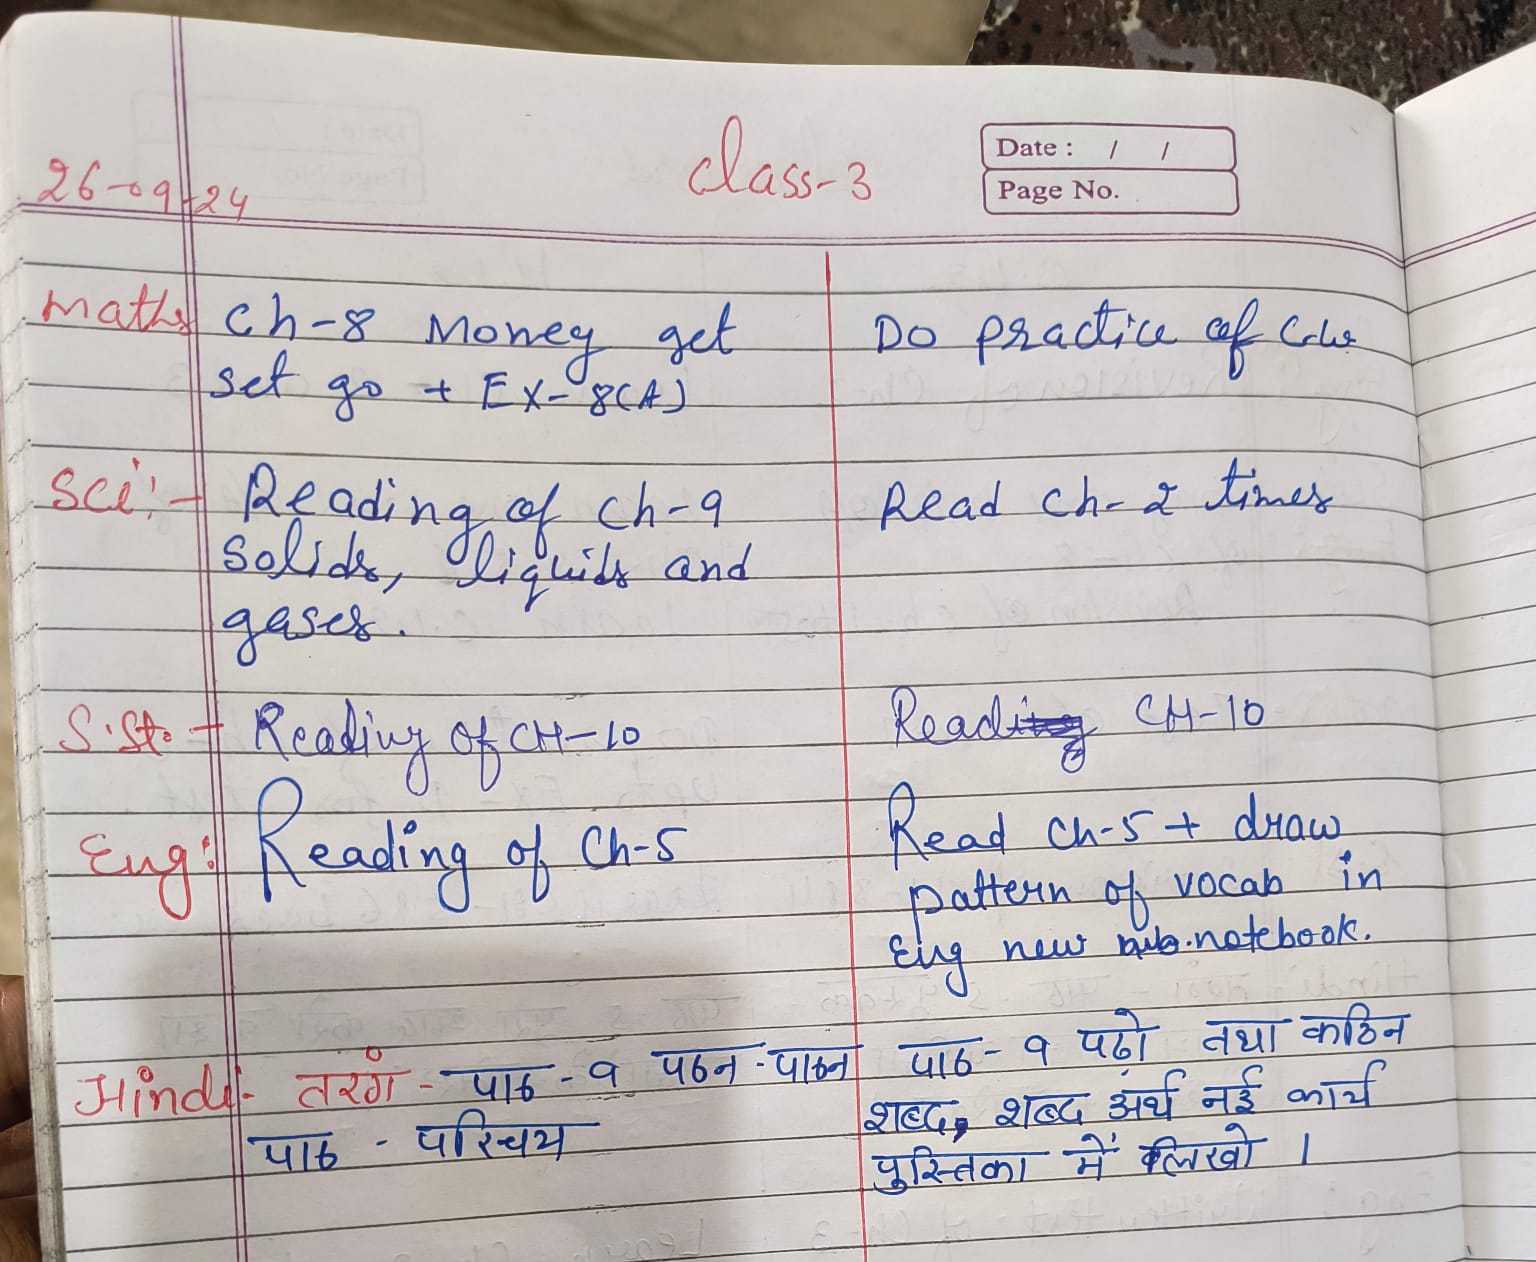 class-3
Date : / /
Page No.
26-09-24
Maths ch-8 Money get
set go + EX-8(A)
Do practice of C.w.
Sci:- Reading of ch-9
solids, liquids and
gases.
Read ch- 2 times
S.St. - Reading of CH-10
Read CH-10
Eng: Reading of Ch-5
Read ch-5 + draw
pattern of vocab in
Eng new notebook.
Hindi- तरंग - पाठ - १ पठन - पाठन
पाठ - परिचय
पाठ - १ पढ़ो तथा कठिन
शब्द, शब्द अर्थ नई कार्य
पुस्तिका में लिखो ।